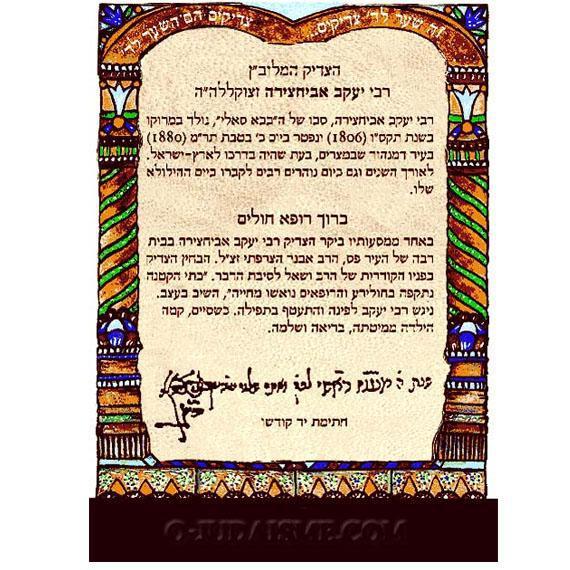 זה שער לה' צדיקים.
צדיקים הם השער לה'
הצדיק המליב"ץ
רבי יעקב אביחצירה זצוקללה"ה
רבי יעקב אביחצירה, סבו של ה"בבא סאלי", נולד במרוקו
בשנת תקס"ו (1806) ונפטר ביום כ' בטבת תר"מ (1880)
בעיר דמנהור שבמצרים, בעת שהיה בדרכו לארץ-ישראל.
לאורך השנים וגם כיום נוהרים רבים לקברו ביום ההילולא
שלו.
ברוך רופא חולים
באחד ממסעותיו ביקר הצדיק רבי יעקב אביחצירה בבית
רבה של העיר פס, הרב אבנר הצרפתי זצ"ל. הבחין הצדיק
בפניו הקודרות של הרב ושאל לסיבת הדבר. "בתי הקטנה
נתקפה בחולירע והרופאים נואשו מחייה", השיב בעצב.
ניגש רבי יעקב לפינה והתעטף בתפילה. כשסיים, קמה
הילדה ממיטתה, בריאה ושלמה.
חתימת יד קודשו
O-JUDAISME.COM